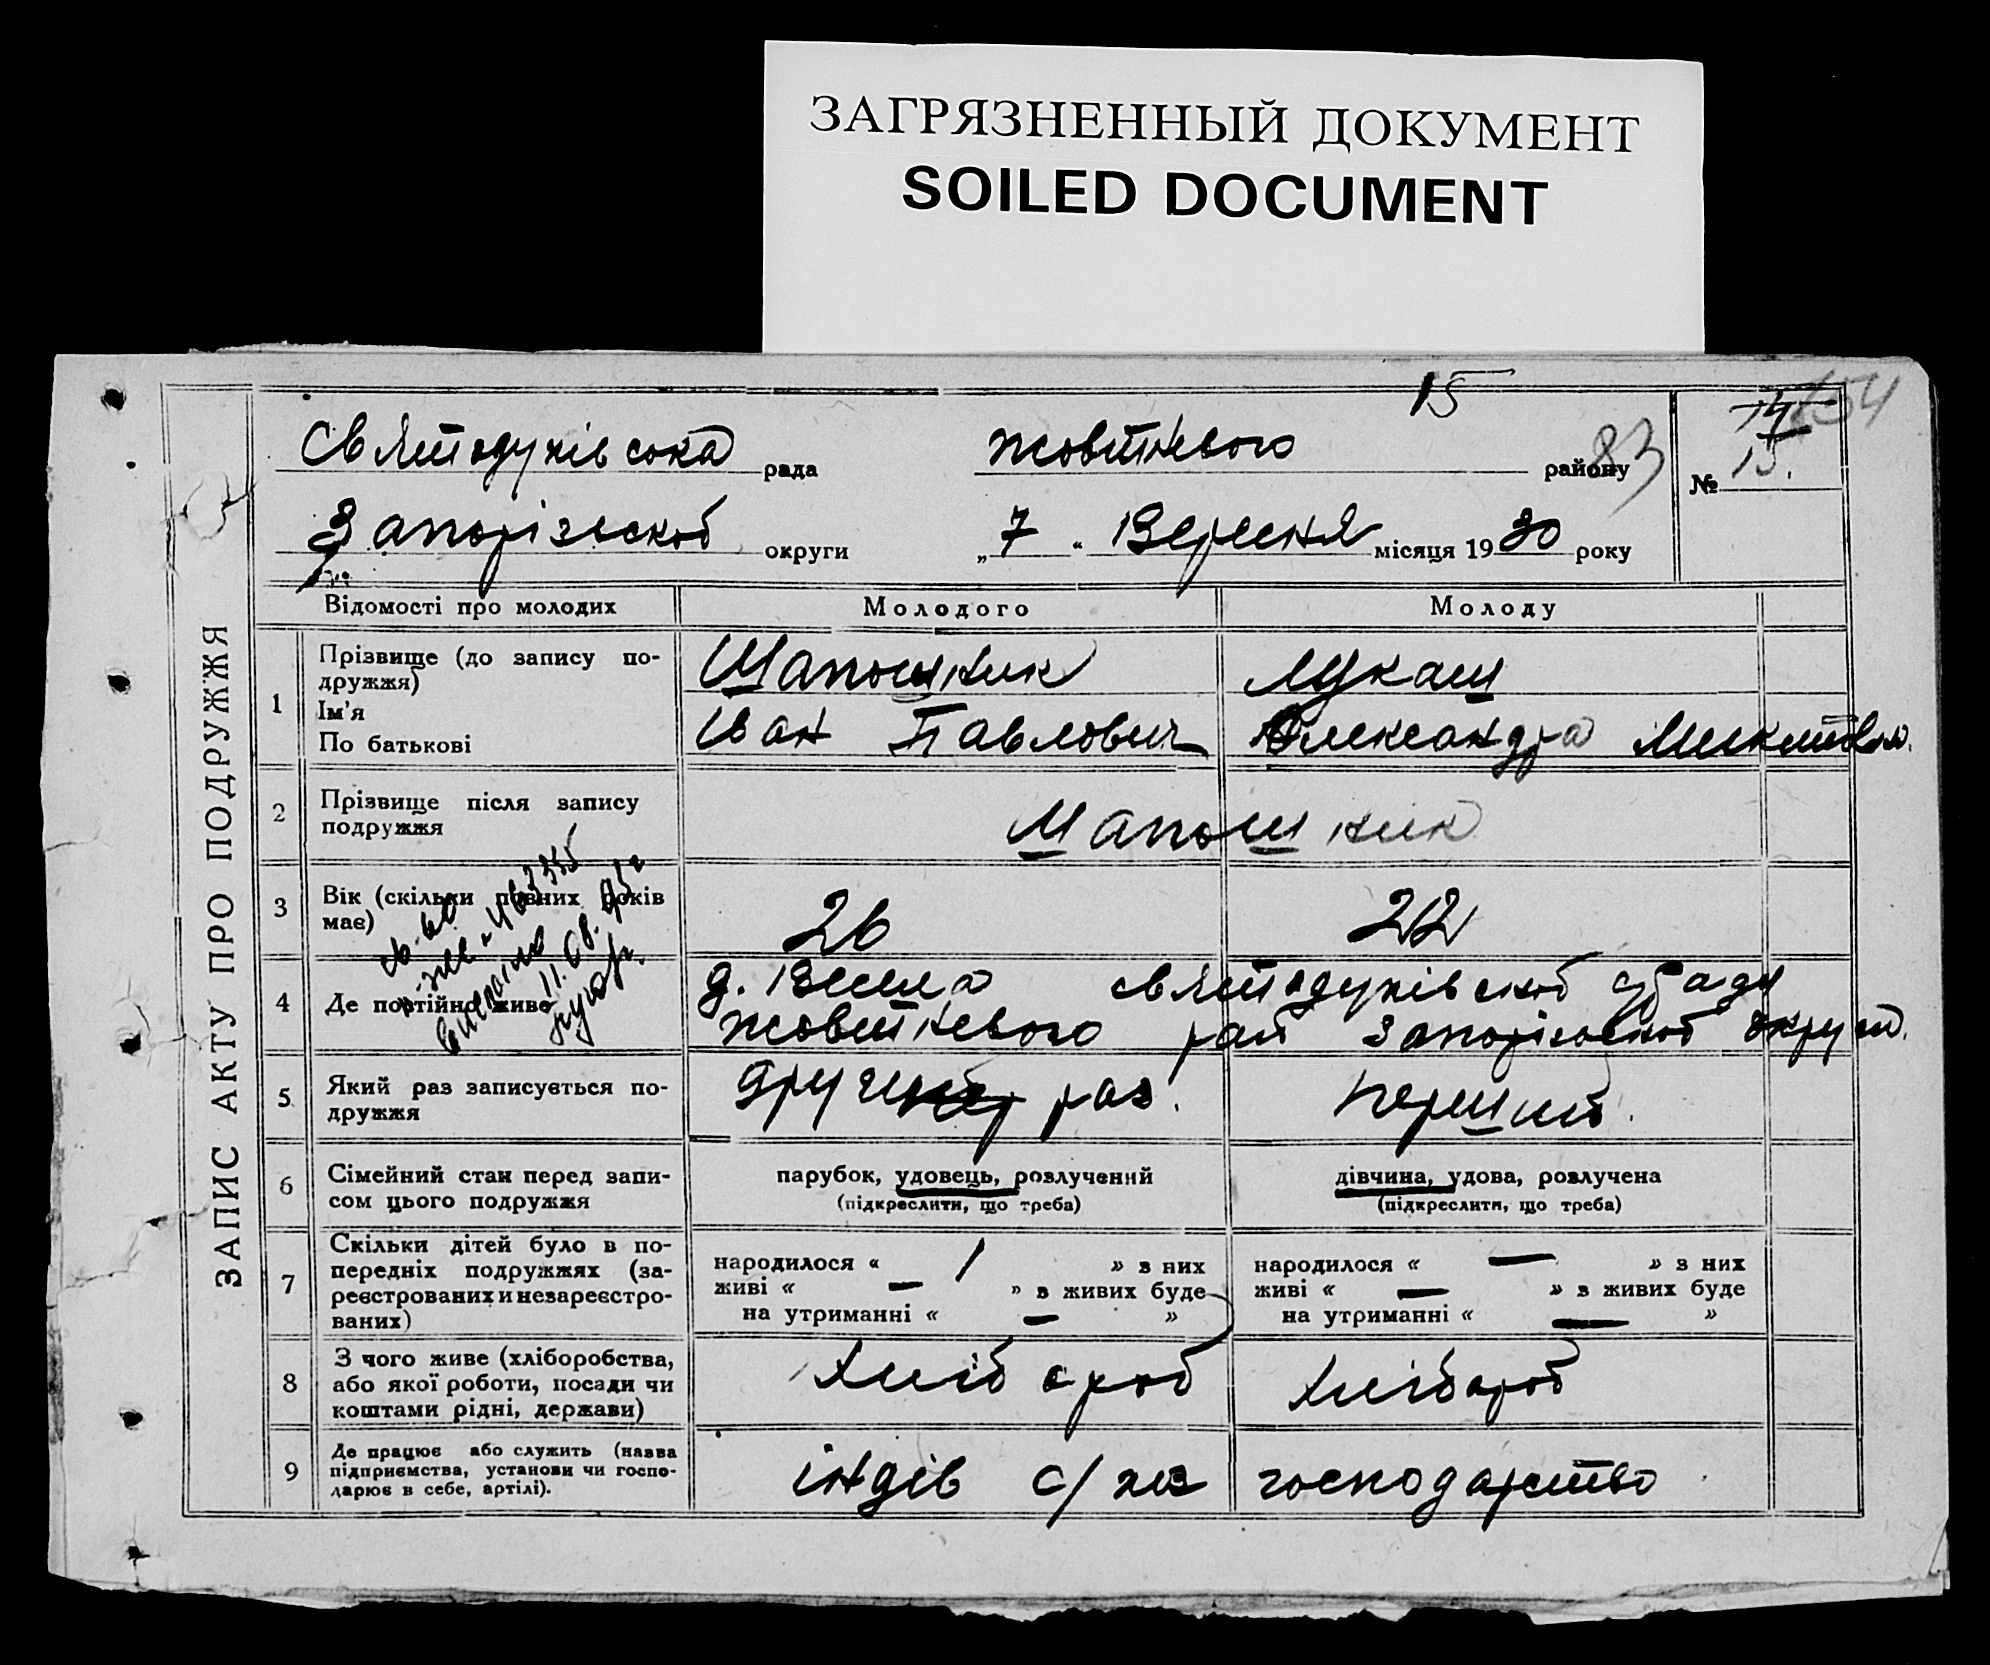 ЗАГРЯЗНЕННЫЙ ДОКУМЕНТ
SOILED DOCUMENT
15
154
Святодухівська рада Жовтневого району 83 № 14 15.
Запорізької округи „7“ Вересня місяця 1930 року
ЗАПИС АКТУ ПРО ПОДРУЖЖЯ
Відомості про молодих Молодого Молоду
1 Прізвище (до запису подружжя) Шапошник Лукаш
Ім'я
По батькові Іван Павлович Олександра Микитовн.
2 Прізвище після запису подружжя Шапошник
3 Вік (скільки повних років має) 26 22
св-во
11.08.
4 Де постійно живе д. Весела Святодухівської с/ради
Жовтневого рай Запорізької округи.
5 Який раз записується подружжя другий раз. перший.
6 Сімейний стан перед записом цього подружжя парубок, удовець, розлучений дівчина, удова, розлучена
(підкреслити, що треба) (підкреслити, що треба)
7 Скільки дітей було в попередніх подружжях (зареєстрованих и незареєстрованих) народилося « / » з них народилося « — » з них
живі « — » з живих буде живі « — » з живих буде
на утриманні « — » на утриманні « — »
8 З чого живе (хліборобства, або якої роботи, посади чи коштами рідні, держави) Хлібороб Хлібороб
9 Де працює або служить (назва підприємства, установи чи господарює в себе, артілі). індів с/хоз господарство